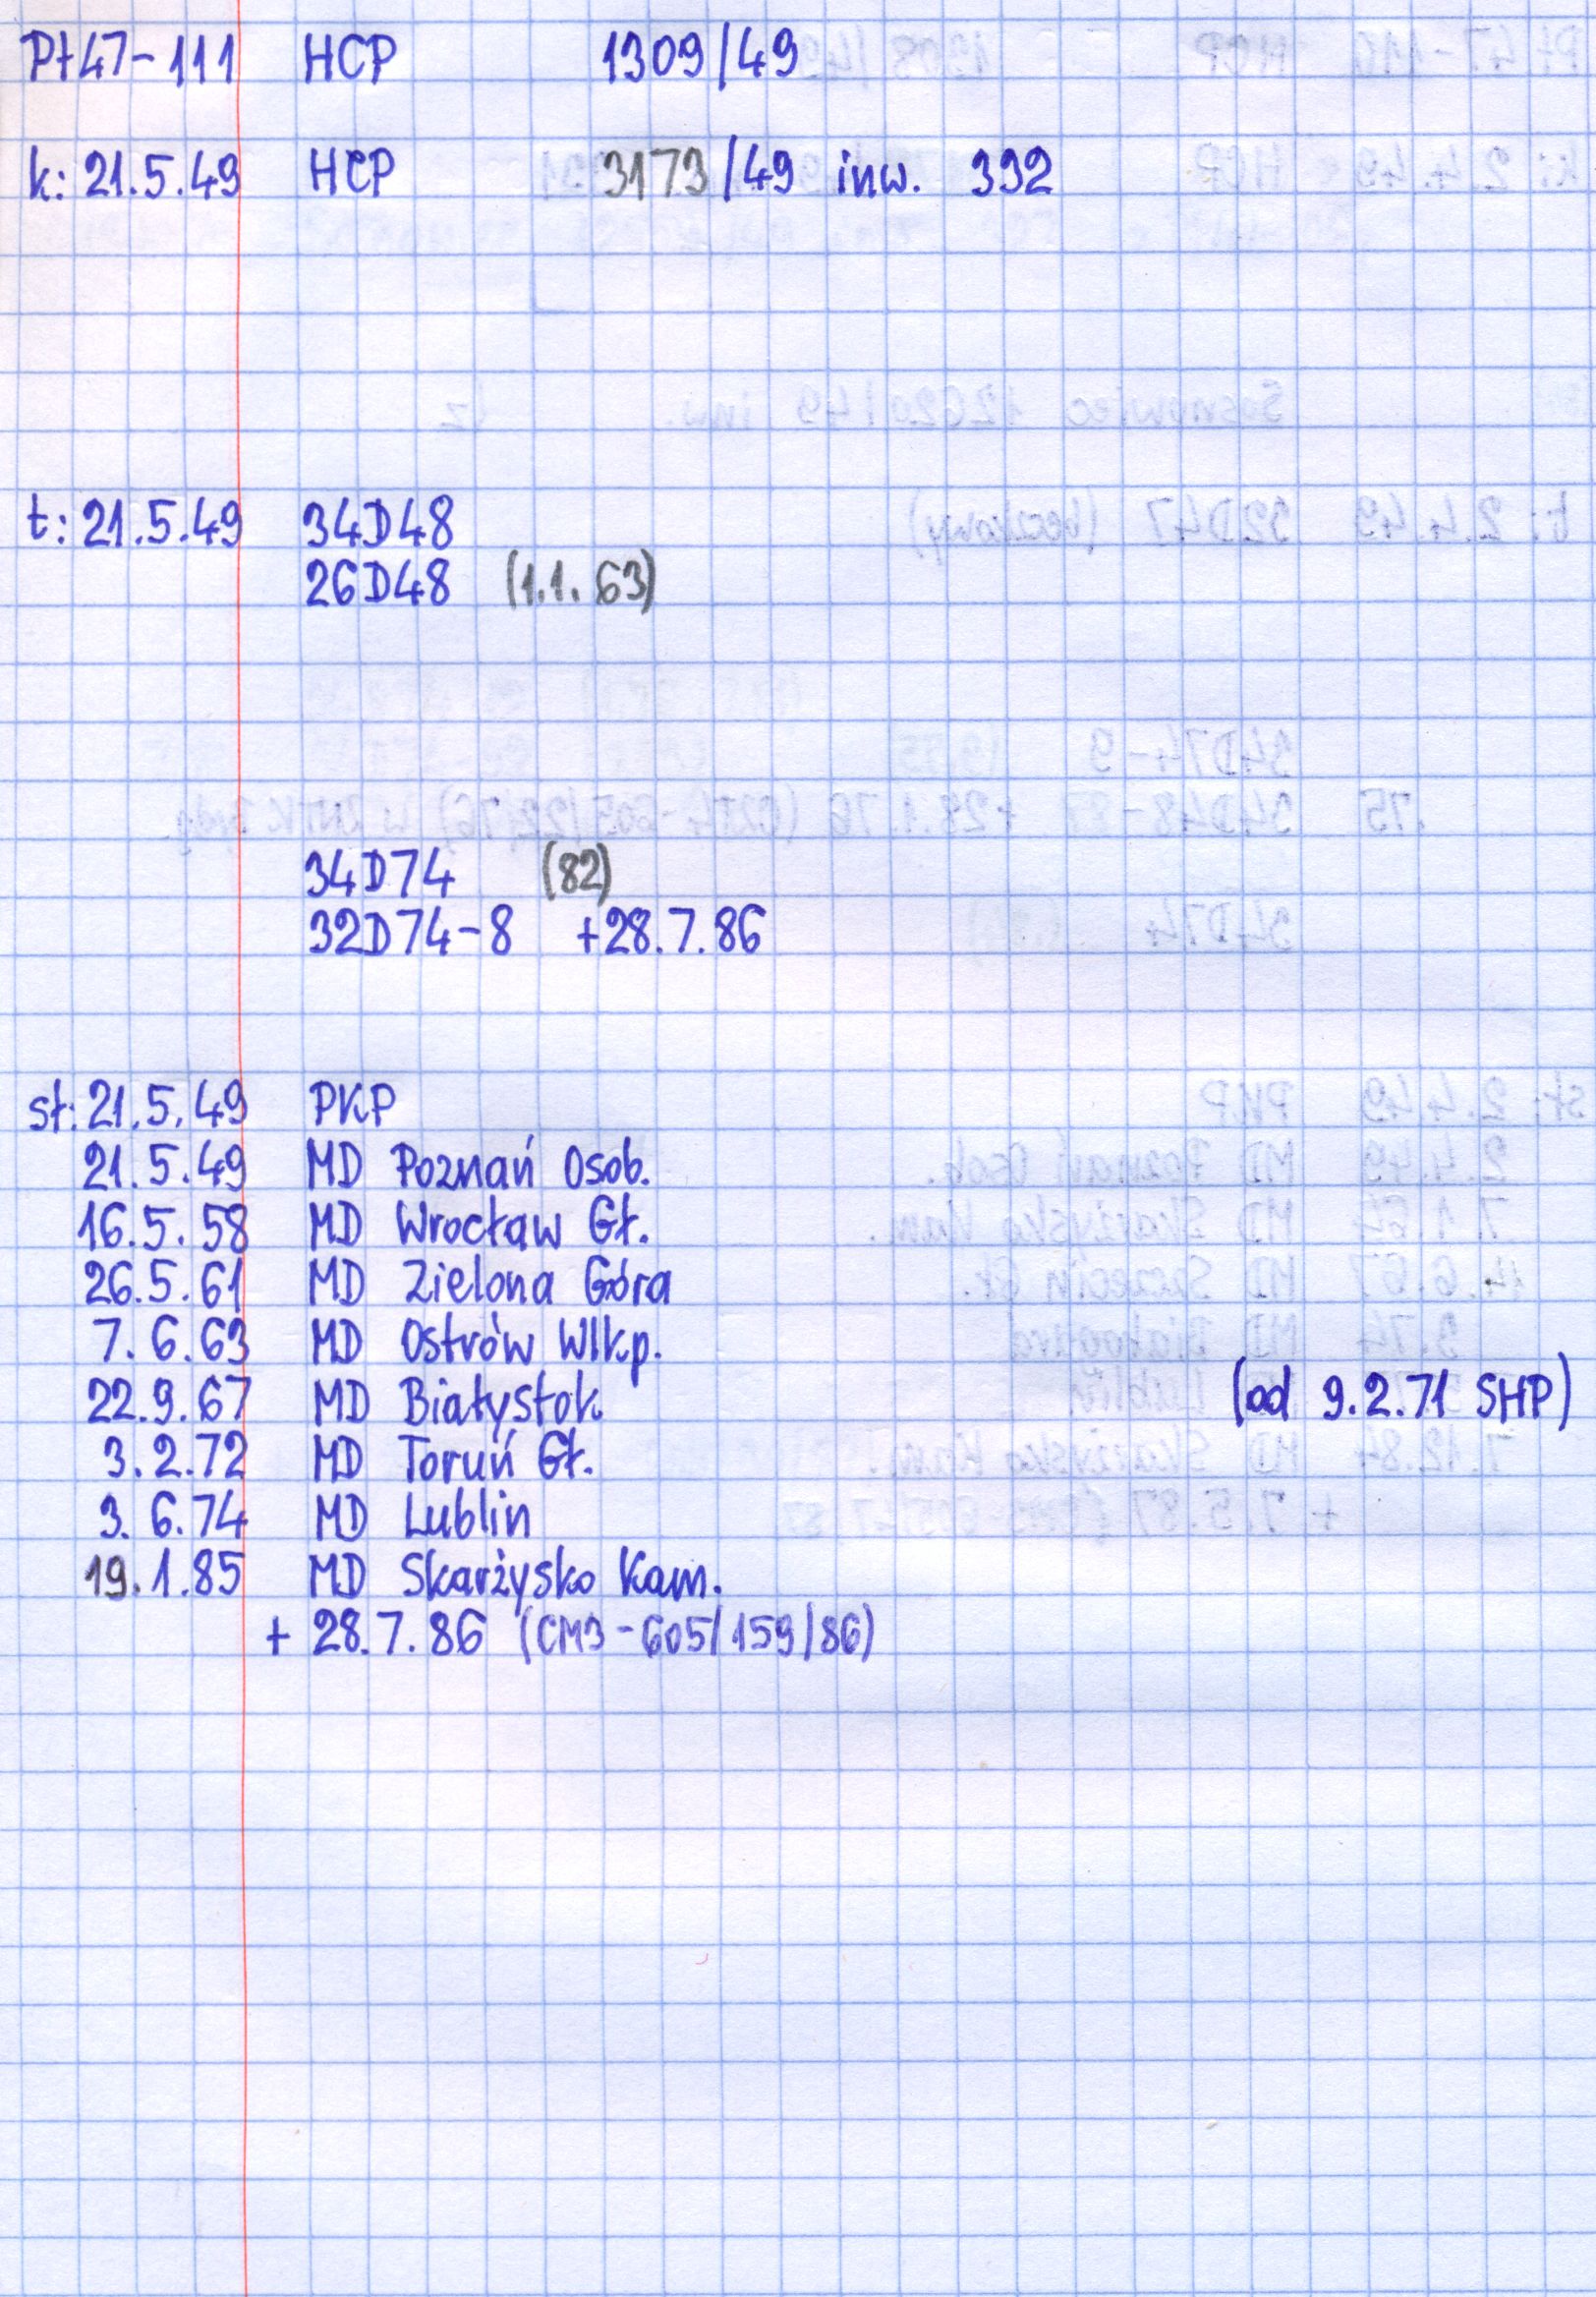 Pt47-111 HCP 1309/49
k: 21.5.49 HCP 3173/49 inw. 332
t: 21.5.49 34D48
26D48 (1.1.63)
34D74 (82)
32D74-8 +28.7.86
st: 21.5.49 PKP
21.5.49 MD Poznań Osob.
16.5.58 MD Wrocław Gł.
26.5.61 MD Zielona Góra
7.6.63 MD Ostrów Wlkp.
22.9.67 MD Białystok (od 9.2.71 SHP)
3.2.72 MD Toruń Gł.
3.6.74 MD Lublin
19.1.85 MD Skarżysko Kam.
+ 28.7.86 (CM3-605/159/86)